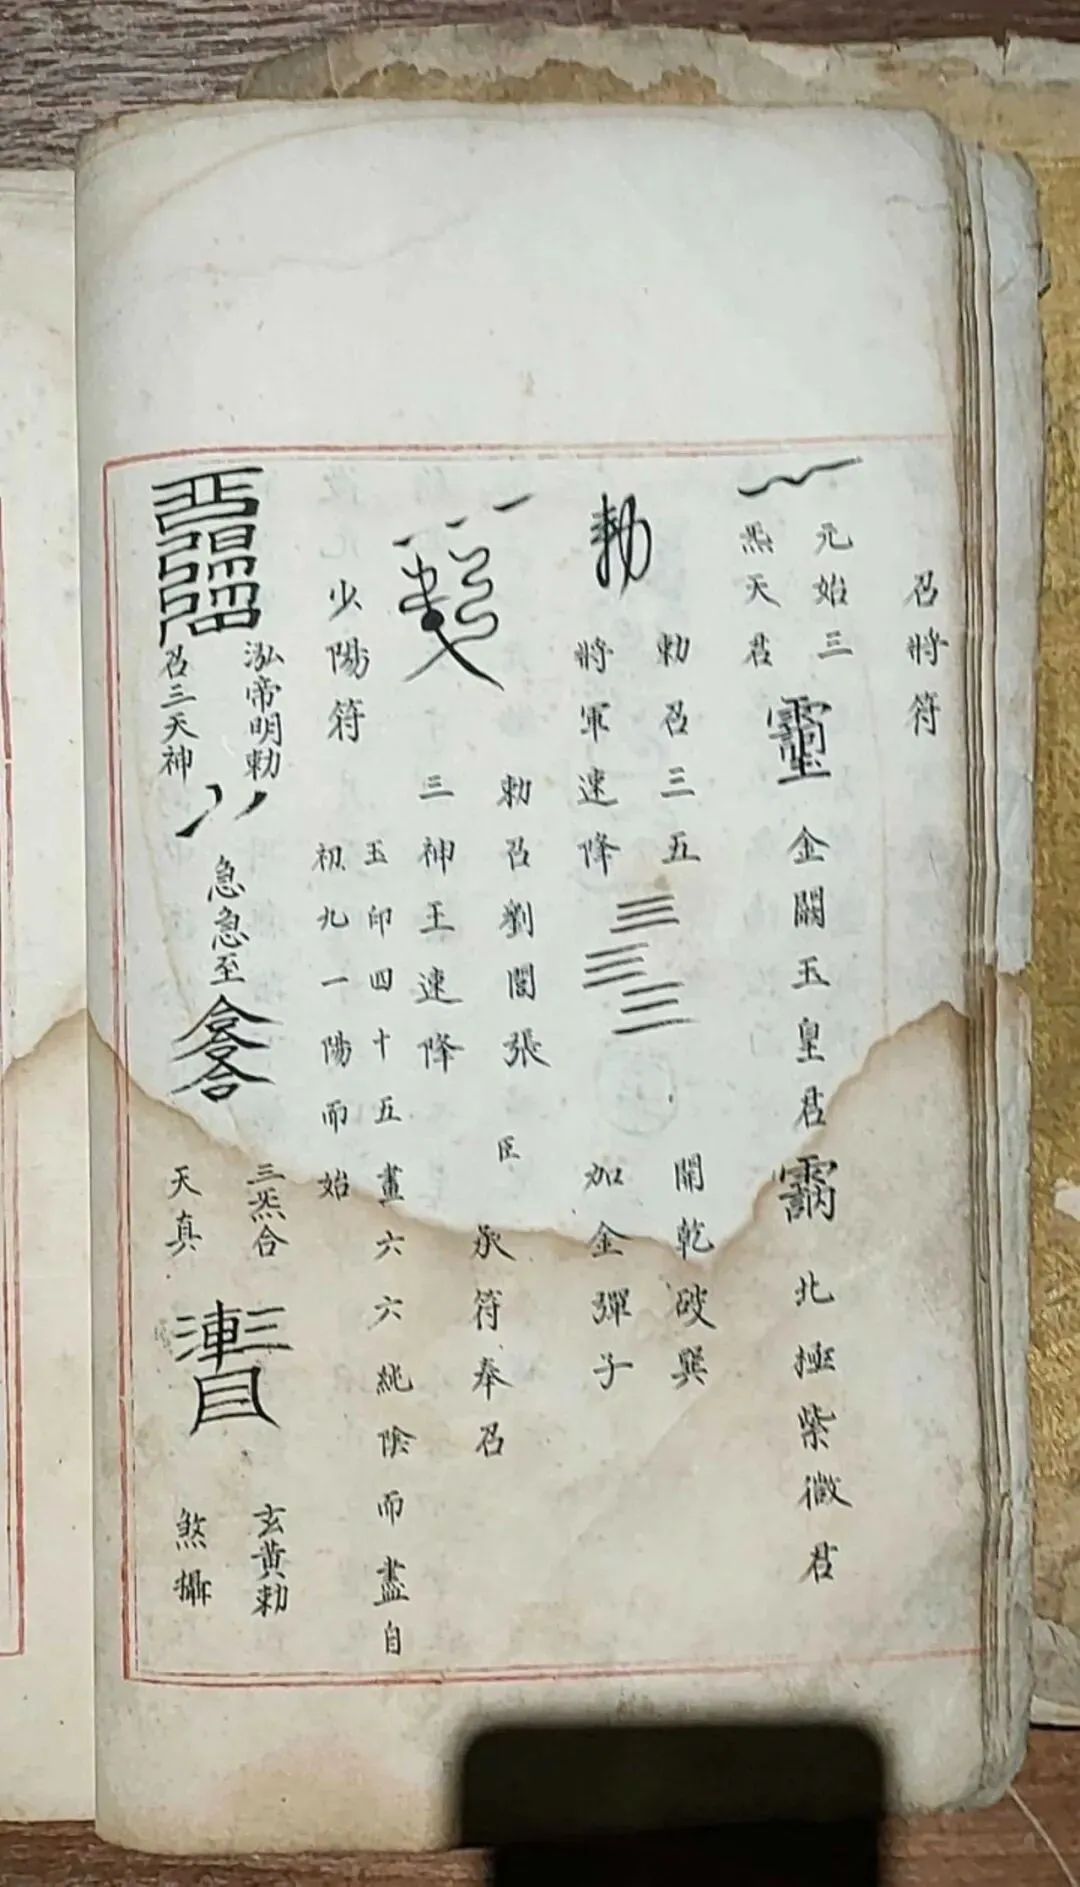 召將符
元始三
炁天君
金闕玉皇君
北極紫微君
勅
勅召三五
將軍速降
開乾破巽
加金彈子
勅召劉闾張
三神王速降
臣
承符奉召
少陽符
玉印四十五畫六六純陰而盡自
初九一陽而始
泓帝明勅
召三天神
急急至
三炁合
天真
玄黃勅
煞攝